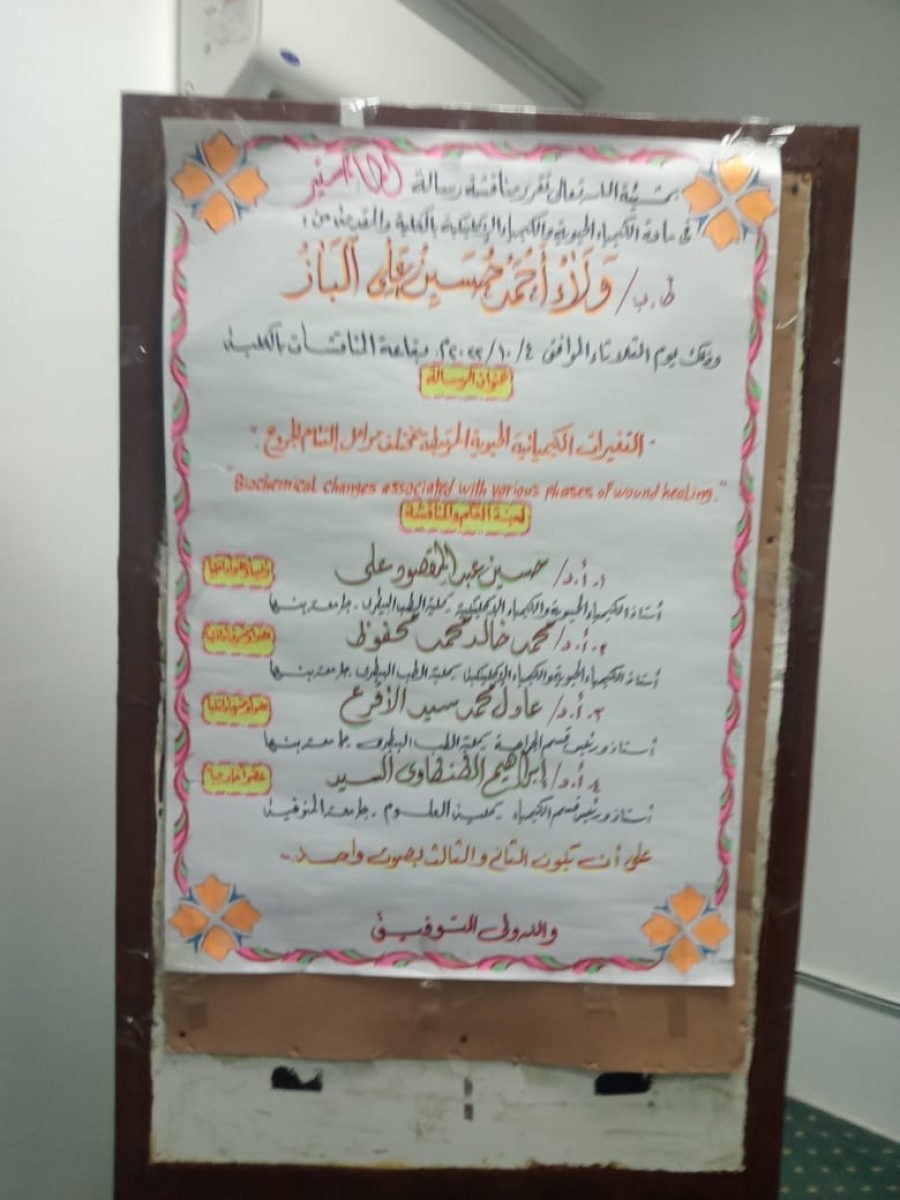 بمشيئة الله تعالى تقرر مناقشة رسالة الماجستير
فى مادة الكيمياء الحيوية والكيمياء الإكلينيكية بالكلية والمقدمة من:
ط.ب/ وَلَاءُ أَحْمَدْ حُسَيِنْ عَلِى البَازْ
وذلك يوم الثلاثاء الموافق ٢٠٢٢/١٠/٤م بقاعة المناقشات بالكلية
عنوان الرسالة
"التغيرات الكيميائية الحيوية المرتبطة بمختلف مراحل إلتئام الجروح"
"Biochemical changes associated with various phases of wound healing."
لجنة الحكم والمناقشة
١.أ.د/ حسين عبد المقصود على
أستاذ الكيمياء الحيوية والكيمياء الإكلينيكية بكلية الطب البيطرى - جامعة بنها
٢.أ.د/ محمد خالد محمد محفوظ
أستاذ الكيمياء الحيوية والكيمياء الإكلينيكية بكلية الطب البيطرى - جامعة بنها
٣.أ.د/ عادل محمد سيد الأقرع
أستاذ ورئيس قسم الجراحة بكلية الطب البيطرى - جامعة بنها
٤.أ.د/ إبراهيم الطنطاوى السيد عضواً خارجياً
أستاذ ورئيس قسم الكيمياء بكلية العلوم - جامعة المنوفية
على أن يكون الثانى والثالث بصوت واحد -
والله ولى التوفيق